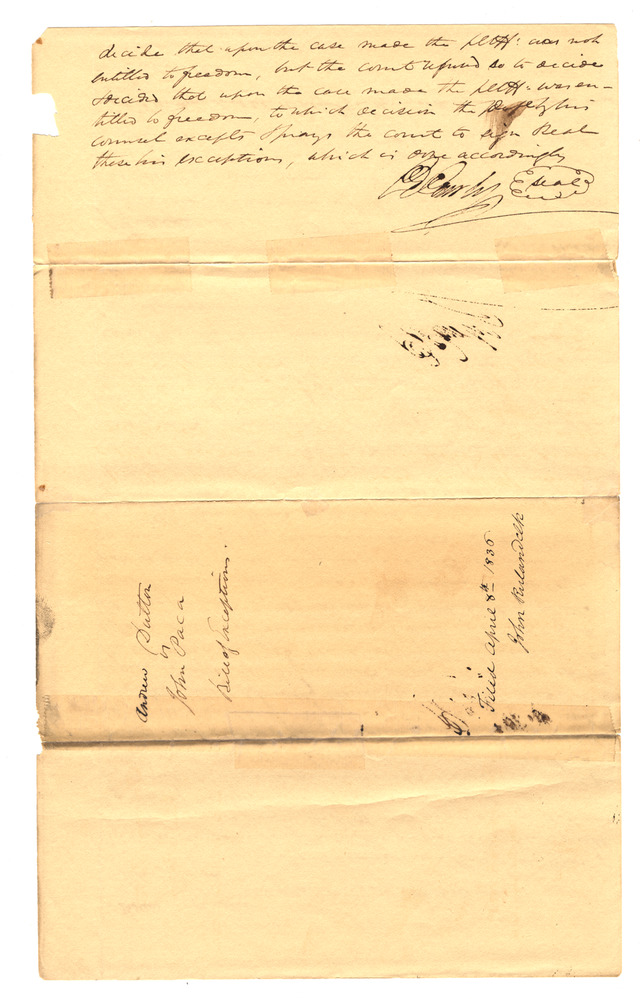 decide that upon the case made the petitr. was not
entitled to freedom, but the court refused so to decide
& decided that upon the case made the petitr. was en-
titled to freedom, to which decision the by his
counsel excepts & prays the court to sign & seal
these his exceptions, which is done accordingly
seal
Andrew Sutton
vs
John Paca
Bill of Exceptions.
Filed April 8th 1836
John